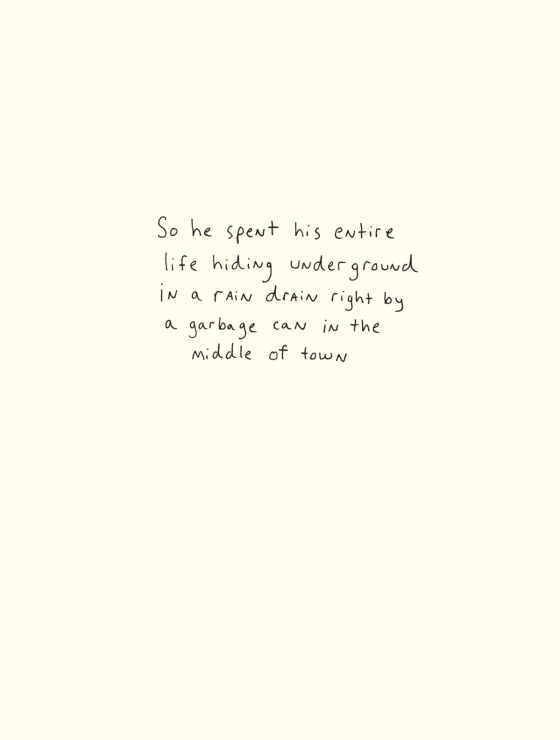 So he spent his entire
life hiding underground
in a rain drain right by
a garbage can in the
middle of town